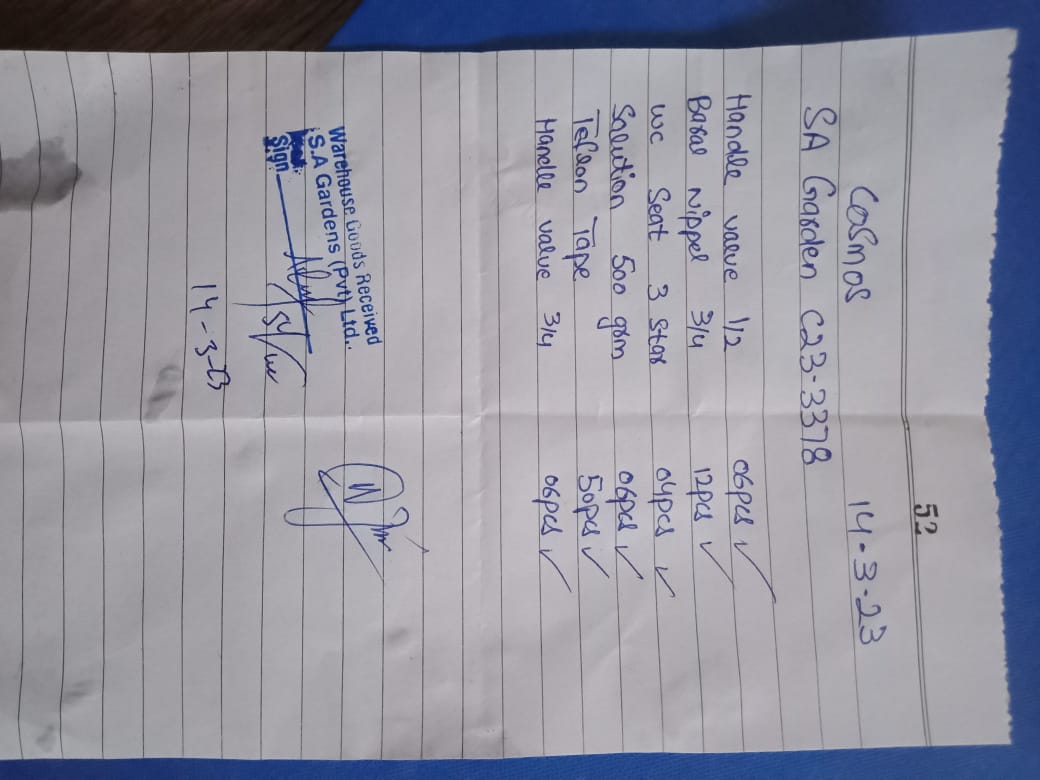 52
Cosmos 14-3-23
SA Garden C23-3378
Handle valve 1/2 06pcs ✓
Baral Nippel 3/4 12pcs ✓
WC Seat 3 Star 04pcs ✓
Solution 500 grm 06pcs ✓
Teflon Tape 50pcs ✓
Handle valve 3/4 06pcs ✓
Warehouse Goods Received
S.A Gardens (Pvt) Ltd..
Sign
14-3-23